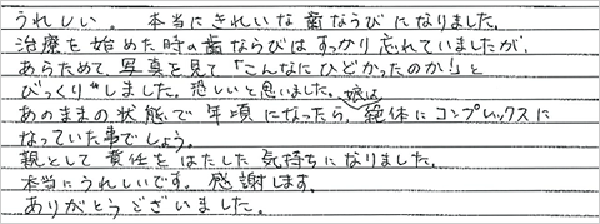 うれしい。 本当にきれいな歯ならびになりました。
治療を始めた時の歯ならびはすっかり忘れていましたが、
あらためて写真を見て「こんなにひどかったのか!」と
びっくりしました。恐しいと思いました。
あのままの状態で年頃になったら、娘は絶体にコンプレックスに
なっていた事でしょう。
親として責任をはたした気持ちになりました。
本当にうれしいです。感謝します。
ありがとうございました。